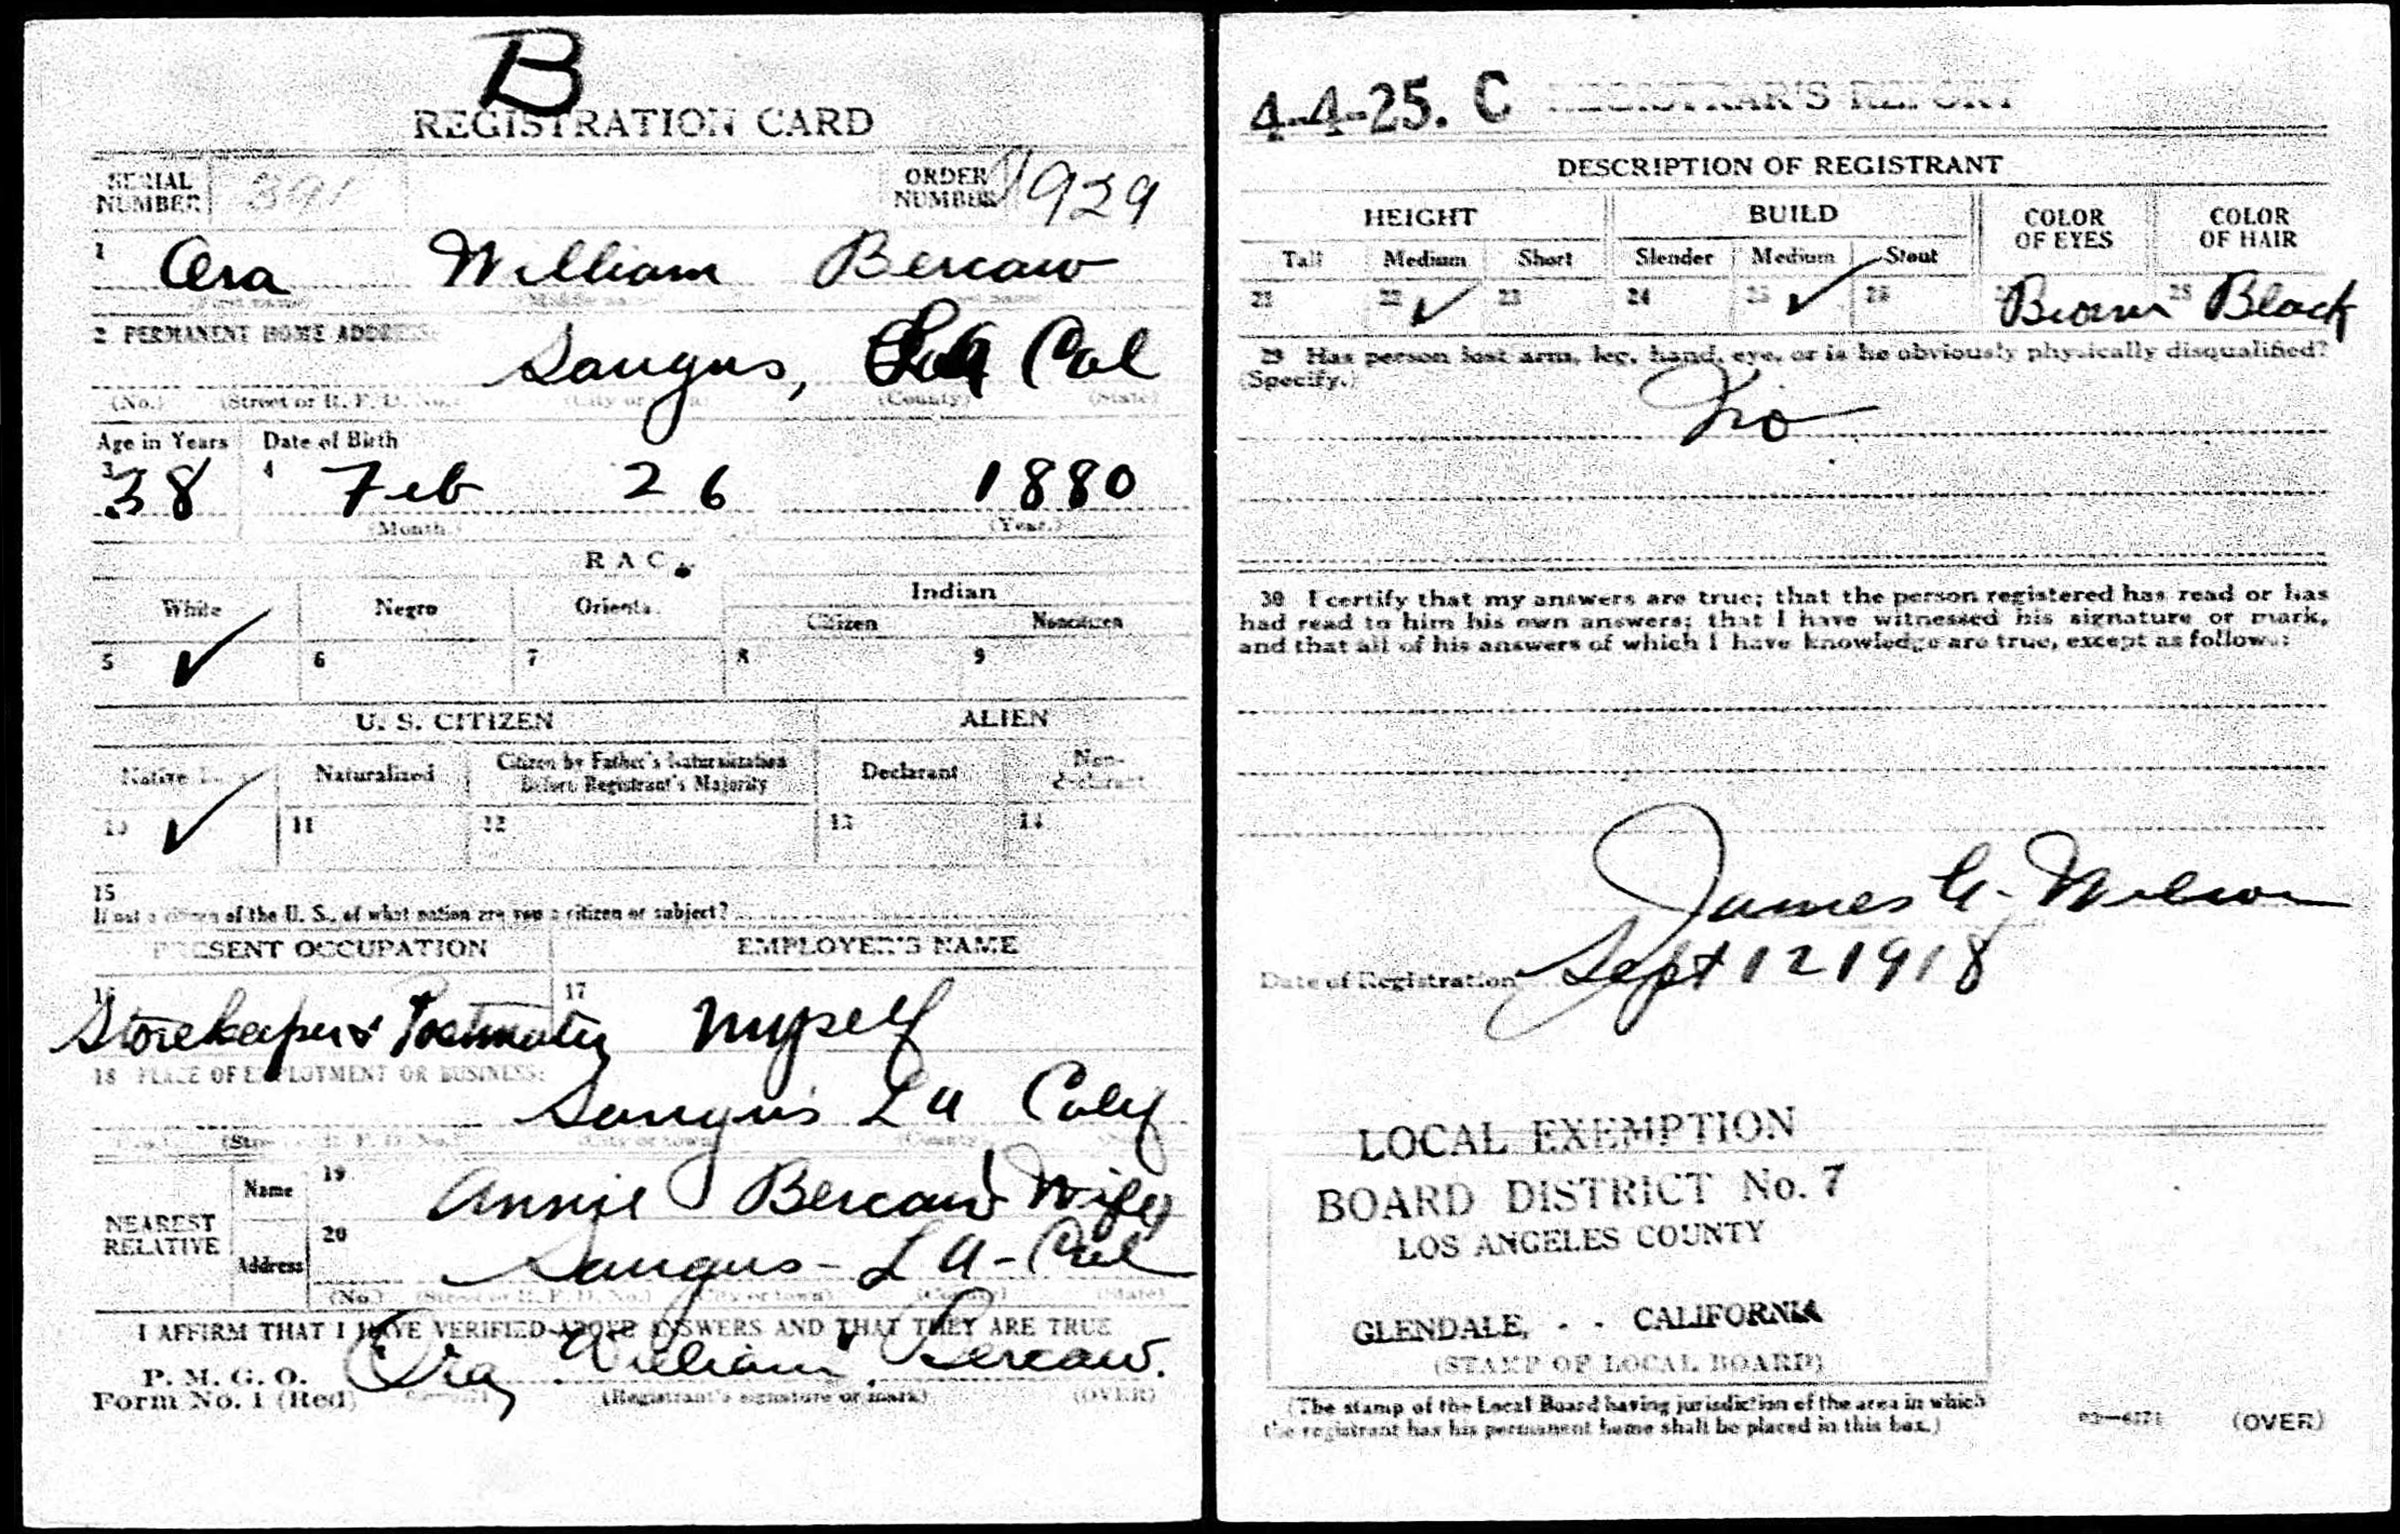 B
REGISTRATION CARD
SERIAL NUMBER 391 ORDER NUMBER 1929
1 Ora William Bercaw
(First name) (Middle name) (Last name)
2 PERMANENT HOME ADDRESS:
Saugus, LA Cal
(No.) (Street or R. F. D. No.) (City or town) (County) (State)
Age in Years Date of Birth
3 38 4 Feb 26 1880
(Month.) (Year.)
RACE
White Negro Oriental Indian
Citizen Noncitizen
5 ✓ 6 7 8 9
U. S. CITIZEN ALIEN
Native Born Naturalized Citizen by Father's Naturalization Before Registrant's Majority Declarant Non-declarant
10 ✓ 11 12 13 14
15
If not a citizen of the U. S., of what nation are you a citizen or subject?
PRESENT OCCUPATION EMPLOYER'S NAME
16 Storekeeper & Postmaster 17 Myself
18 PLACE OF EMPLOYMENT OR BUSINESS:
Saugus LA Calif
(No.) (Street or R. F. D. No.) (City or town) (County) (State)
NEAREST RELATIVE Name 19 Annie Bercaw Wife
Address 20 Saugus - LA - Cal
(No.) (Street or R. F. D. No.) (City or town) (County) (State)
I AFFIRM THAT I HAVE VERIFIED ABOVE ANSWERS AND THAT THEY ARE TRUE
P. M. G. O.
Form No. 1 (Red) Ora William Bercaw.
(Registrant's signature or mark) (OVER)
4-4-25. C REGISTRAR'S REPORT
DESCRIPTION OF REGISTRANT
HEIGHT BUILD COLOR OF EYES COLOR OF HAIR
Tall Medium Short Slender Medium Stout
21 22 ✓ 23 24 25 ✓ 26 Brown 28 Black
29 Has person lost arm, leg, hand, eye, or is he obviously physically disqualified?
(Specify.)
No
30 I certify that my answers are true; that the person registered has read or has
had read to him his own answers; that I have witnessed his signature or mark,
and that all of his answers of which I have knowledge are true, except as follows:
James G. Wilson
Date of Registration Sept 12 1918
LOCAL EXEMPTION
BOARD DISTRICT No. 7
LOS ANGELES COUNTY
GLENDALE, - - CALIFORNIA
(STAMP OF LOCAL BOARD)
(The stamp of the Local Board having jurisdiction of the area in which
the registrant has his permanent home shall be placed in this box.)
03—6171 (OVER)